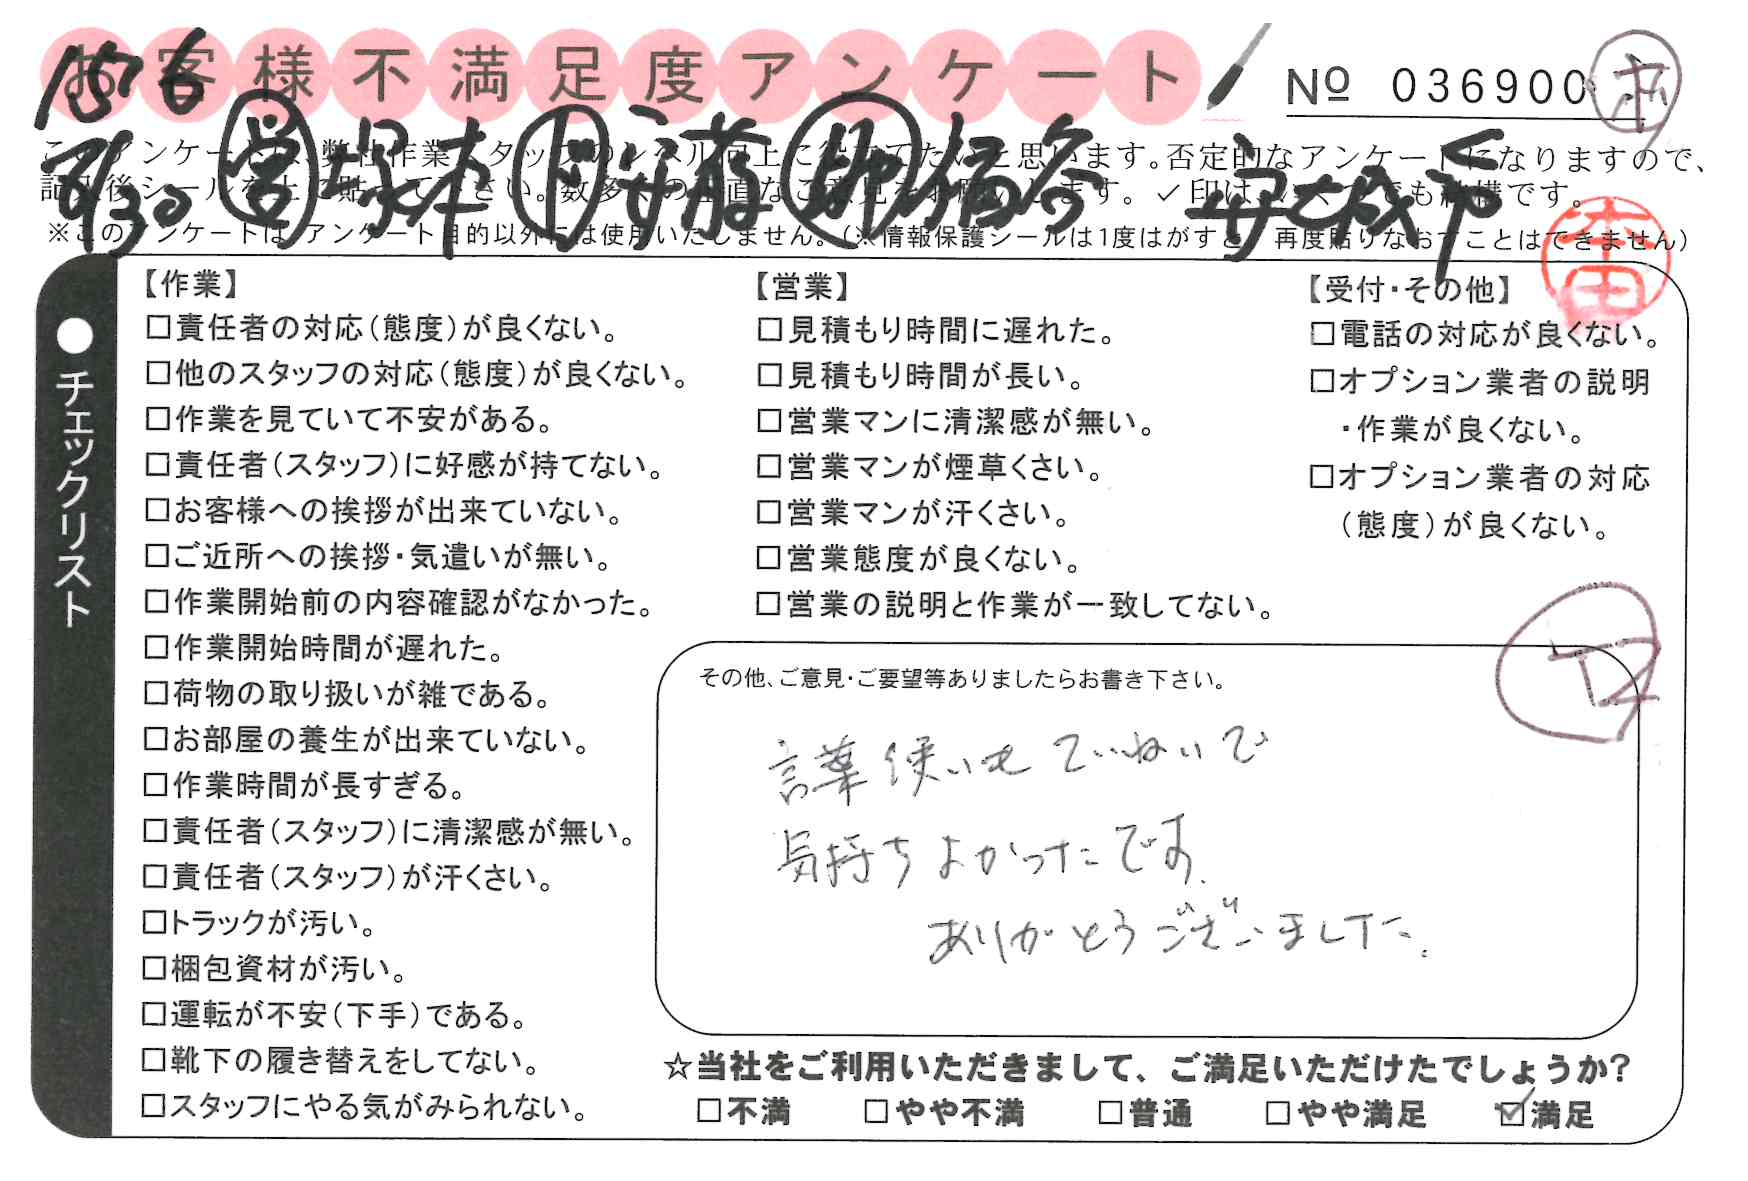 お客様不満足度アンケート
№ 036900
156
8/30 営 塚本 ド 安藤 助 福谷 安城市
このアンケートは、弊社作業スタッフのレベル向上に役立てたいと思います。否定的なアンケートになりますので、
記入後シールを上に貼って下さい。数多くの正直なご意見をお願いします。✓印は、いくつでも結構です。
※このアンケートは、アンケート目的以外には使用いたしません。(※情報保護シールは1度はがすと、再度貼りなおすことはできません)
本田
●チェックリスト
【作業】
□責任者の対応(態度)が良くない。
□他のスタッフの対応(態度)が良くない。
□作業を見ていて不安がある。
□責任者(スタッフ)に好感が持てない。
□お客様への挨拶が出来ていない。
□ご近所への挨拶・気遣いが無い。
□作業開始前の内容確認がなかった。
□作業開始時間が遅れた。
□荷物の取り扱いが雑である。
□お部屋の養生が出来ていない。
□作業時間が長すぎる。
□責任者(スタッフ)に清潔感が無い。
□責任者(スタッフ)が汗くさい。
□トラックが汚い。
□梱包資材が汚い。
□運転が不安(下手)である。
□靴下の履き替えをしてない。
□スタッフにやる気がみられない。
【営業】
□見積もり時間に遅れた。
□見積もり時間が長い。
□営業マンに清潔感が無い。
□営業マンが煙草くさい。
□営業マンが汗くさい。
□営業態度が良くない。
□営業の説明と作業が一致してない。
【受付・その他】
□電話の対応が良くない。
□オプション業者の説明
・作業が良くない。
□オプション業者の対応
(態度)が良くない。
その他、ご意見・ご要望等ありましたらお書き下さい。
言葉使いもていねいで
気持ちよかったです。
ありがとうございました。
☆当社をご利用いただきまして、ご満足いただけたでしょうか?
□不満 □やや不満 □普通 □やや満足 ☑満足